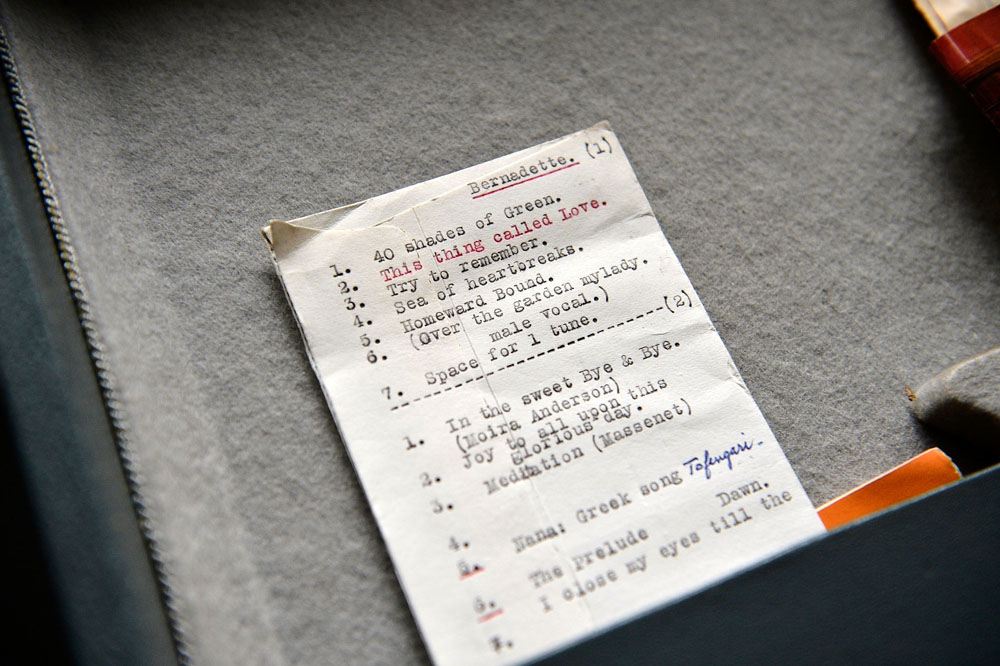 Bernadette. (1)
1. 40 shades of Green.
2. This thing called Love.
3. Try to remember.
4. Sea of heartbreaks.
5. Homeward Bound.
6. (Over the garden mylady.
male vocal.)
7. Space for 1 tune.
--------------------------(2)
1. In the sweet Bye & Bye.
(Moira Anderson)
2. Joy to all upon this
Glorious day.
3. Meditation (Massenet)
4. Nana: Greek song Tofengari-
5. The Prelude Dawn.
6. I close my eyes till the
7.